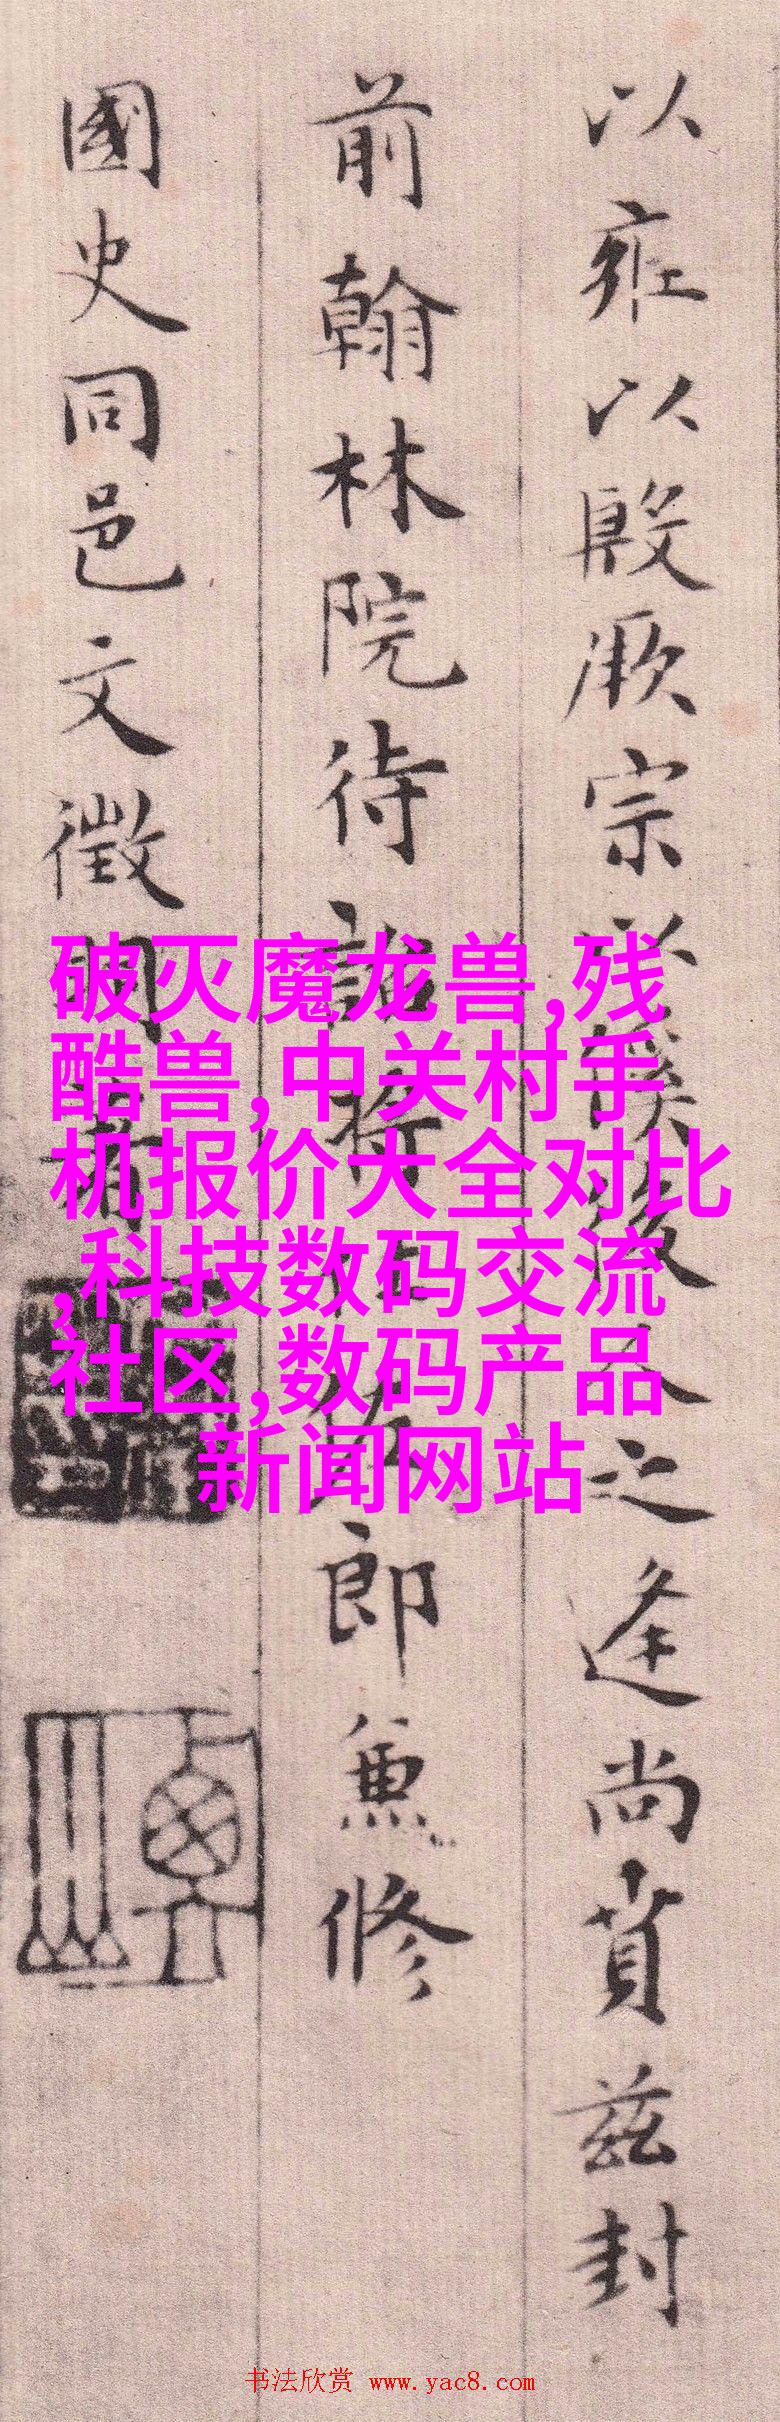 以雍以殷厥宗以溪後人之逢尚賁茲封
前翰林院待詔將仕佐郎兼修
國史同邑文徵明書
破灭魔龙兽,残
酷兽,中关村手
机报价大全对比
,科技数码交流
社区,数码产品
新闻网站
书法欣赏 www.yac8.com